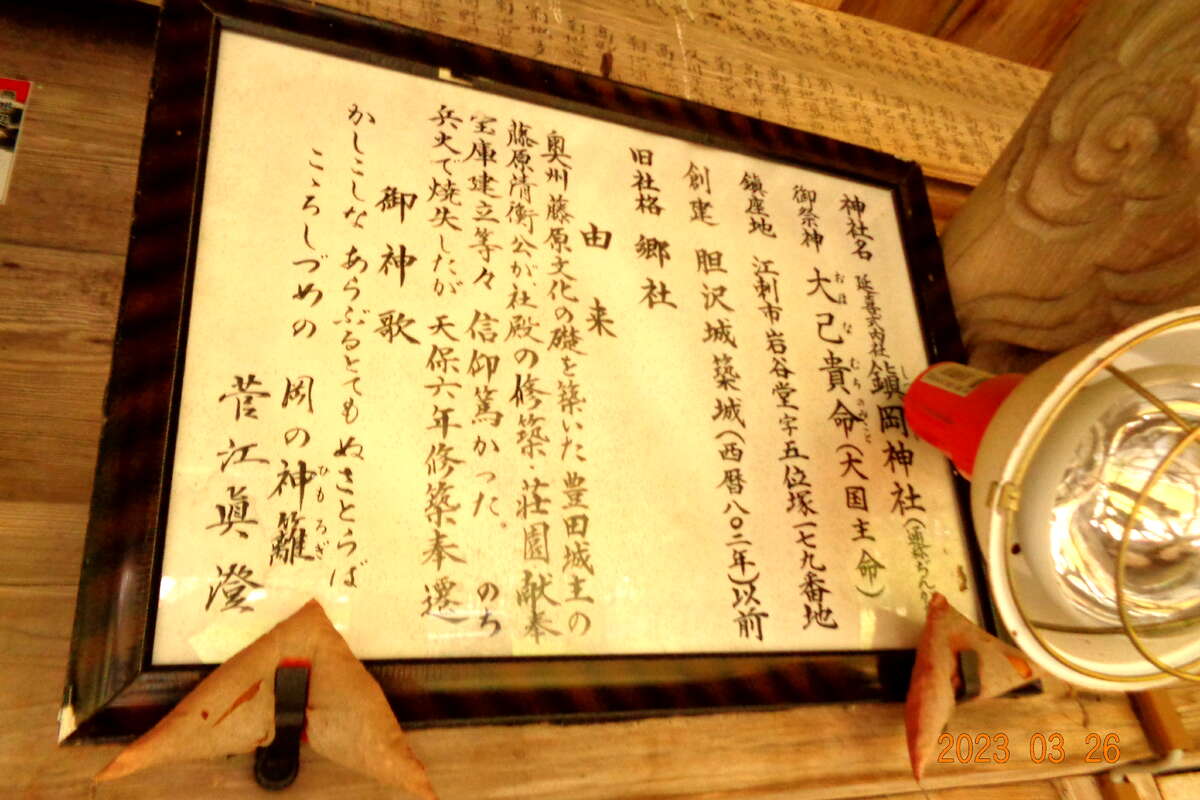 神社名 延喜式内社 鎮岡神社
御祭神 大己貴命(大国主命)
おほなむちのみこと
鎮座地 江刺市岩谷堂字五位塚一七九番地
創建 胆沢城築城(西暦八〇二年)以前
旧社格 郷社
由来
奥州藤原文化の礎を築いた豊田城主の
藤原清衡公が社殿の修築・荘園献奉
宝庫建立等々信仰篤かった。のち
兵火で焼失したが天保六年修築奉遷
御神歌
かしこしなあらぶるとてもぬさとらば
こゝろしづめの岡の神籬
ひもろぎ
菅江眞澄
2023 03 26